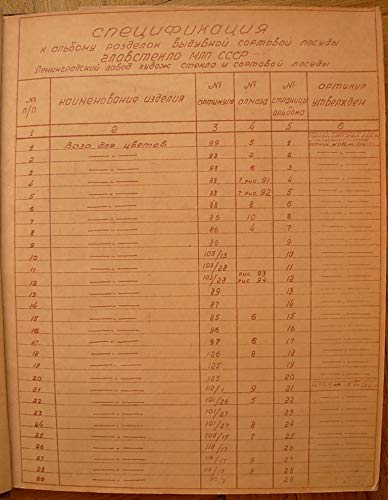 Спецификация
к альбому разделок выдувной сортовой посуды
Главстекло МЛП СССР
Ленинградский завод худож стекла и сортовой посуды
№ п/п наименование изделия № артикула № алмаза № страницы альбома артикул утвержден
1 2 3 4 5 6
1 Ваза для цветов 99 5 1
2 —„— 98 2 2
3 —„— 98 6 3
4 —„— 28 7 рис 91 4
5 —„— 28 7 рис 92 5
6 —„— 28 8 6
7 —„— 26 10
8 —„— 26 4 7
9 —„— 26 9
10 —„— 105/13 10
11 —„— 103/28 рис 93 11
12 —„— 103/28 рис 94 12
13 —„— 29 13
14 —„— 27 14
15 —„— 25 6 15
16 —„— 96 16
17 —„— 97 6 17
18 —„— 126 8 18
19 —„— 125 19
20 —„— 125 20
21 —„— 112/1 9 21
22 —„— 101/26 5 22
23 —„— 101/27 23
24 —„— 101/27 8 24
25 —„— 108/15 7 25
26 —„— 26
27 —„— 118/17 9 27
28 —„— 118/17 8 28
29 —„— 29